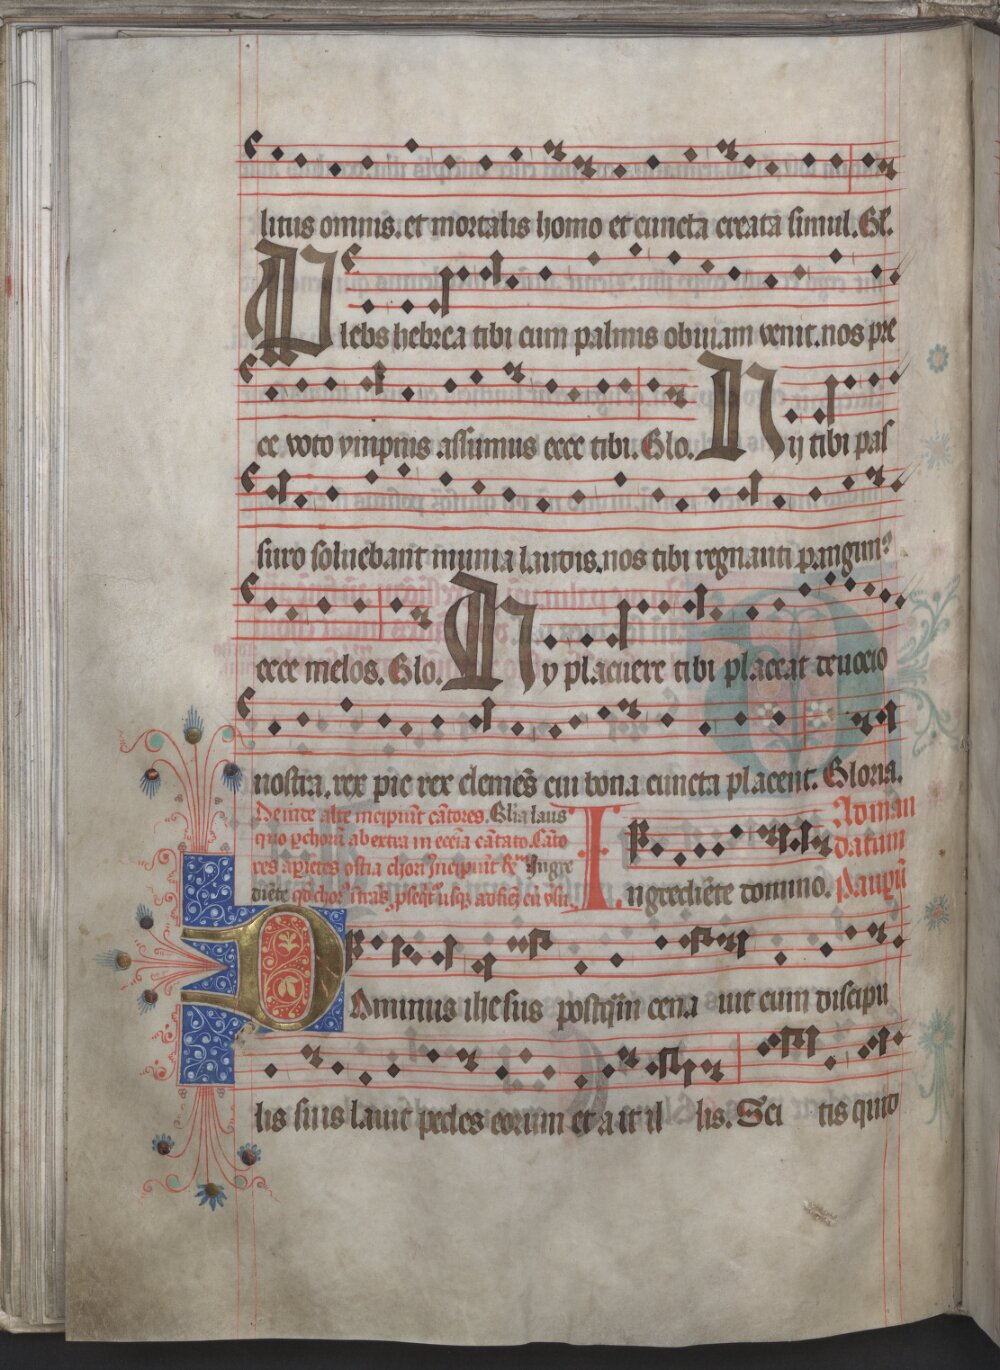 litus omnis. et mortalis homo et cuncta creata simul. Gl.
Plebs hebrea tibi cum palmis obuiam venit. nos pre
ce voto ympnis assumus ecce tibi. Glo. Hij tibi pas
suro soluebant munia laudis. nos tibi regnanti pangim⁹
ecce melos. Glo. Hy placuere tibi placeat deuocio
nostra. rex pie rex clemēs cui bona cuncta placent. Gloria.
Deinde alte incipiūt cātores. Glīa laus
quo ꝑ chorū ab extra in eccīa cātato. Cāto
res ap̄ientes ostia chori Incipiūt Rm Ingre
diēte
Ingrediēte domino. Ad man
datum
Paupū
Dominus ihesus postq̄m cena uit cum discipu
lis suis lauit pedes eorum et ait il lis. Sci tis quid